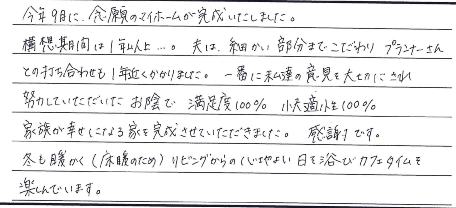 今年9月に、念願のマイホームが完成いたしました。
構想期間は1年以上…。夫は、細かい部分までこだわり プランナーさん
との打ち合わせも1年近くかかりました。一番に私達の意見を大切にされ
努力していただいた お陰で 満足度100% 快適性100%
家族が幸せになる家を完成させていただきました。 感謝です。
冬も暖かく(床暖のため)リビングからの心地よい日を浴びカフェタイムを
楽しんでいます。